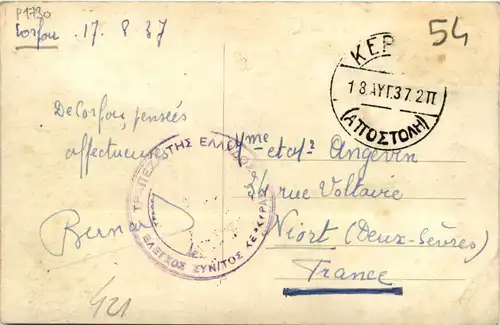 P1730
Corfou, 17. 8. 37
54
ΚΕΡ
18 ΑΥΓ. 37. 2Π
(ΑΠΟΣΤΟΛΗ)
De Corfou, pensées
affectueuses
Bernard
ΤΡΑΠΕΖΑ ΤΗΣ ΕΛΛΑΔΟΣ
ΕΛΕΓΧΟΣ ΣΥΝ/ΤΟΣ ΚΕΡΚΥΡΑ
Mme et Mr Angevin
34 rue Voltaire
Niort (Deux-Sèvres)
France
421